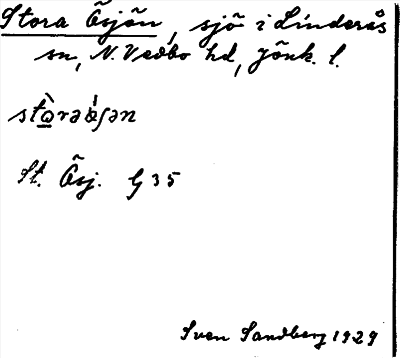 Stora Åsjön, sjö i Linderås
sn, N. Vedbo hd, Jönk. l.
St. Åsj. G 35
Sven Sandberg 1929